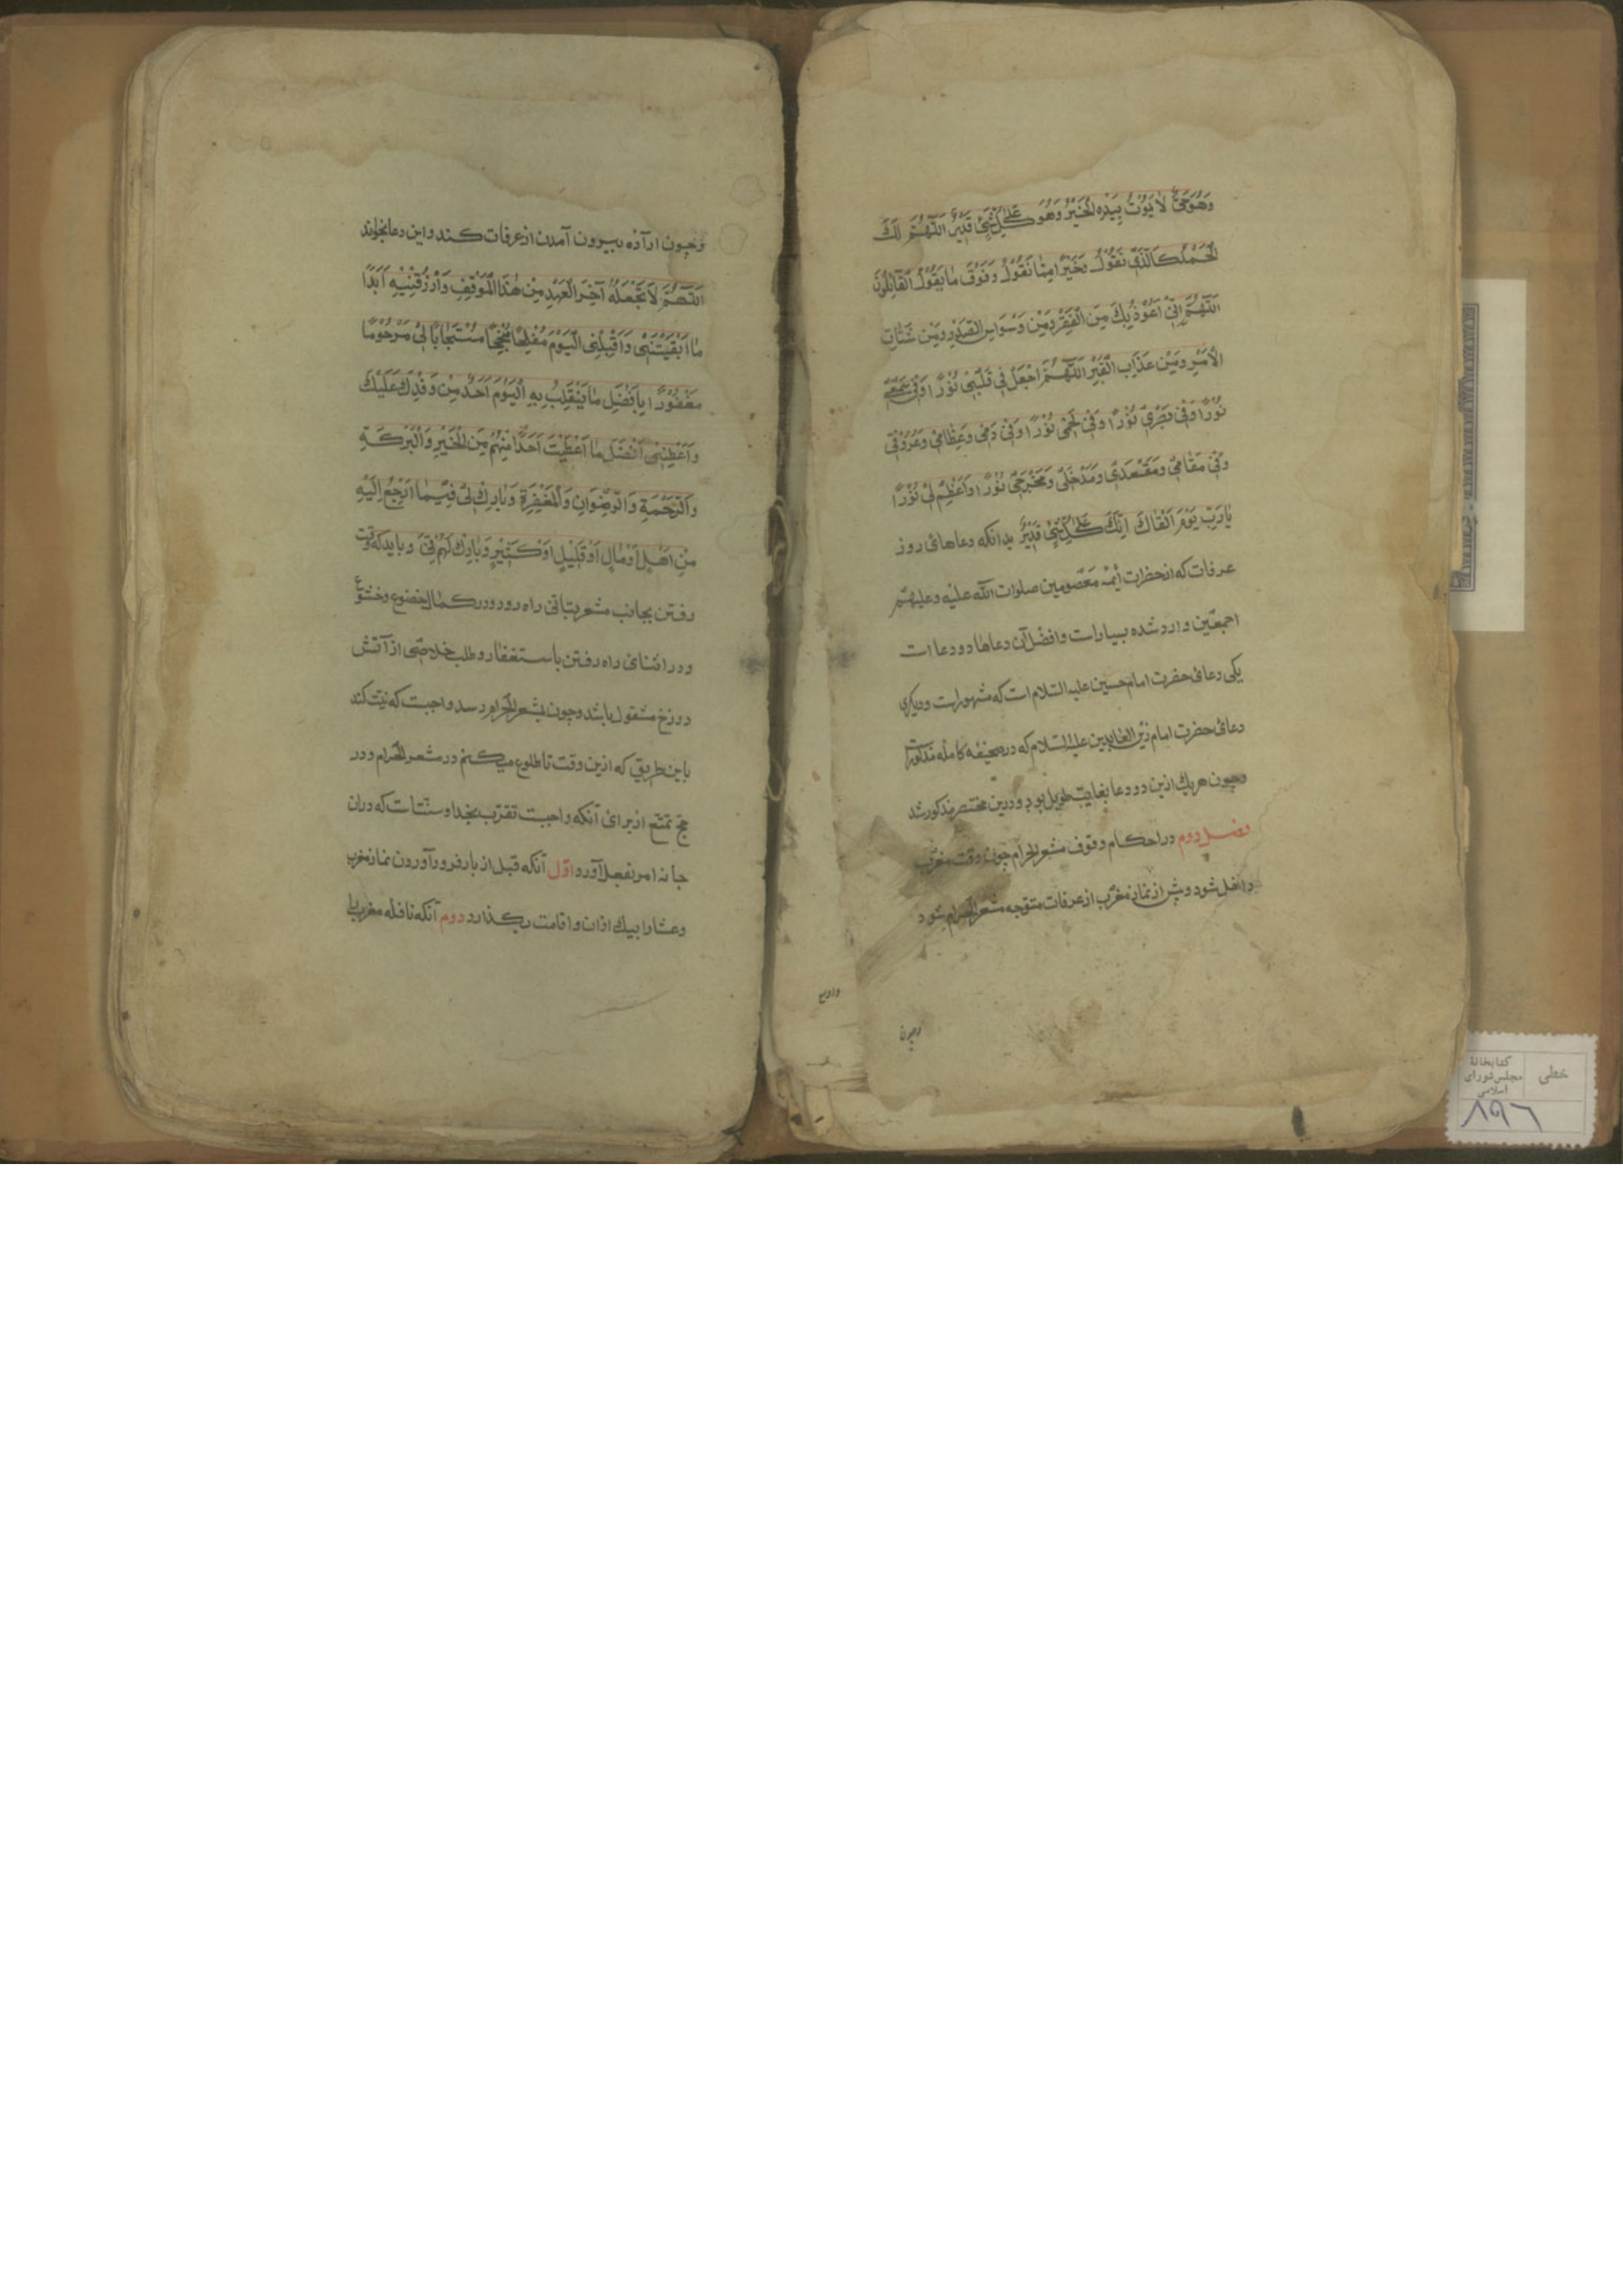 وَهُوَ حَيٌّ لَا يَمُوتُ بِيَدِهِ الْخَيْرُ وَهُوَ عَلىٰ كُلِّ شَيْءٍ قَدِيرٌ اَللّٰهُمَّ لَكَ
الْحَمْدُ كَالَّذِي نَقُولُ وَخَيْرًا مِمَّا نَقُولُ وَفَوْقَ مَا يَقُولُ الْقَائِلُونَ
اَللّٰهُمَّ اِنِّي اَعُوذُ بِكَ مِنَ الْفَقْرِ وَمِنْ وَسْوَاسِ الصَّدْرِ وَمِنْ شَتَاتِ
الْاَمْرِ وَمِنْ عَذَابِ الْقَبْرِ اَللّٰهُمَّ اجْعَلْ فِي قَلْبِي نُورًا وَفِي سَمْعِي
نُورًا وَفِي بَصَرِي نُورًا وَفِي لَحْمِي نُورًا وَفِي دَمِي وَعِظَامِي وَعُرُوقِي
وَفِي مَقَامِي وَمَقْعَدِي وَمَدْخَلِي وَمَخْرَجِي نُورًا وَاَعْظِمْ لِي نُورًا
يَا رَبِّ يَوْمَ اَلْقَاكَ اِنَّكَ عَلىٰ كُلِّ شَيْءٍ قَدِيرٌ بدانکه دعاهای روز
عرفات که از حضرات أئمه معصومین صلوات الله علیه وعلیهم
اجمعین وارد شده بسیار است وافضل آن دعاها دو دعا است
یکی دعای حضرت امام حسین علیه السلام است که مشهور است ودیگری
دعای حضرت امام زین العابدین علیه السلام که در صحیفه کامله مذکور است
وچون هریك ازین دو دعا بغایت طویل بود ودرین مختصر مذکور نشد
فصل دوم در احکام وقوف مشعر الحرام چون وقت مغرب
داخل شود وپیش از نماز مغرب از عرفات متوجه مشعر الحرام شود
وچون
وچون اراده بیرون آمدن از عرفات کند واین دعا بخواند
اَللّٰهُمَّ لَا تَجْعَلْهُ آخِرَ الْعَهْدِ مِنْ هٰذَا الْمَوْقِفِ وَارْزُقْنِيهِ اَبَدًا
مَا اَبْقَيْتَنِي وَاقْلِبْنِي الْيَوْمَ مُفْلِحًا مُنْجِحًا مُسْتَجَابًا لِي مَرْحُومًا
مَغْفُورًا بِاَفْضَلِ مَا يَنْقَلِبُ بِهِ الْيَوْمَ اَحَدٌ مِنْ وَفْدِكَ عَلَيْكَ
وَاَعْطِنِي اَفْضَلَ مَا اَعْطَيْتَ اَحَدًا مِنْهُمْ مِنَ الْخَيْرِ وَالْبَرَكَةِ
وَالرَّحْمَةِ وَالرِّضْوَانِ وَالْمَغْفِرَةِ وَبَارِكْ لِي فِيمَا اَرْجِعُ اِلَيْهِ
مِنْ اَهْلٍ اَوْ مَالٍ اَوْ قَلِيلٍ اَوْ كَثِيرٍ وَبَارِكْ لَهُمْ فِيَّ وباید که وقت
رفتن بجانب مشعر بتانی راه رود ودر کمال خضوع وخشوع
ودر اثنای راه رفتن باستغفار وطلب خلاصی از آتش
دوزخ مشغول باشد وچون بمشعر الحرام رسد واجبست که نیت کند
باین طریق که ازین وقت تا طلوع میکنم در مشعر الحرام ودر
حج تمتع از برای آنکه واجبست تقرب بخدا وسنت است که دران
جا نه امر بفعل آورد اوّل آنکه قبل از بار فرود آوردن نماز مغرب
وعشا را بیك اذان واقامت بگذارد دوم آنکه نافله مغرب را
خطی
کتابخانهٔ
مجلس شورای
اسلامی
۸۹۶